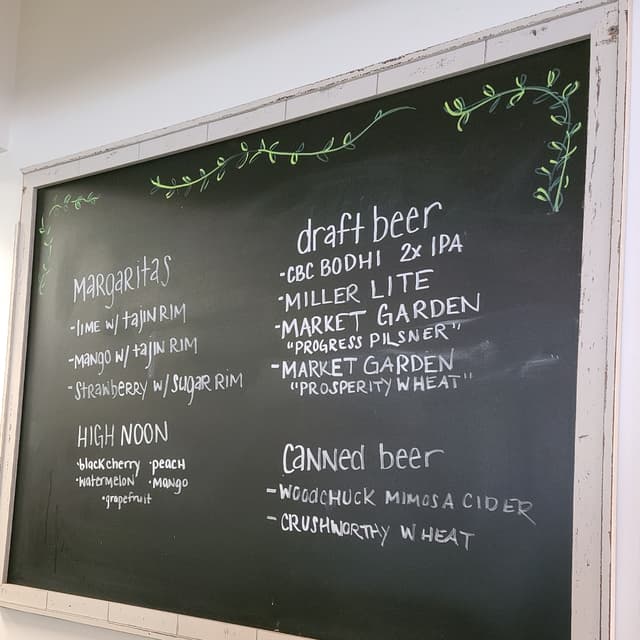 Margaritas
-lime w/ tajin rim
-mango w/ tajin rim
-strawberry w/ sugar rim
HIGH NOON
•black cherry •peach
•watermelon •mango
•grapefruit
draft beer
-CBC BODHI 2x IPA
-MILLER LITE
-MARKET GARDEN
"PROGRESS PILSNER"
-MARKET GARDEN
"PROSPERITY WHEAT"
Canned beer
-WOODCHUCK MIMOSA CIDER
-CRUSHWORTHY WHEAT